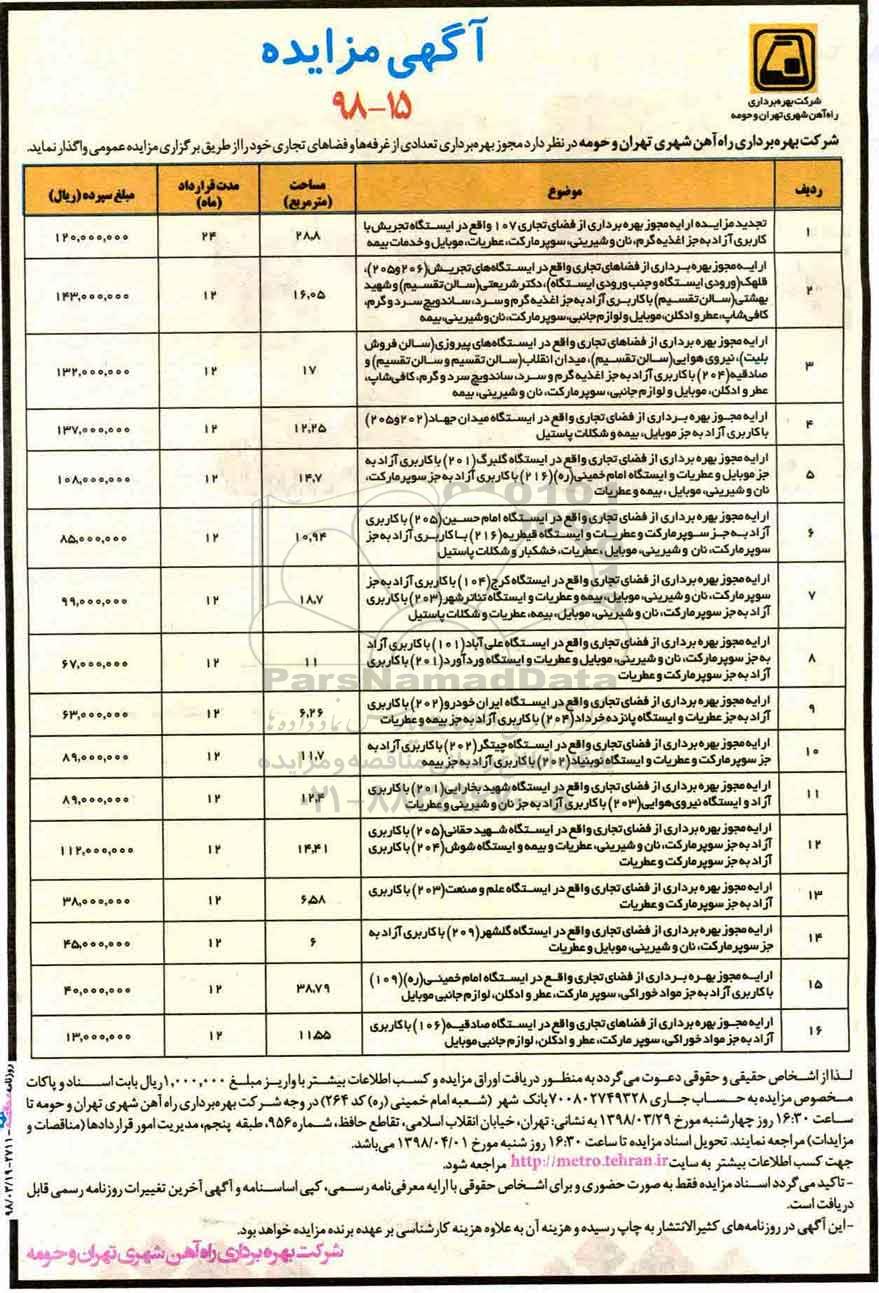 شرکت بهره‌برداری
راه‌آهن شهری تهران و حومه
آگهی مزایده
۹۸-۱۵
شرکت بهره‌برداری راه آهن شهری تهران و حومه در نظر دارد مجوز بهره‌برداری تعدادی از غرفه‌ها و فضاهای تجاری خود را از طریق برگزاری مزایده عمومی واگذار نماید.
ردیف موضوع مساحت (مترمربع) مدت قرارداد (ماه) مبلغ سپرده (ریال)
۱ تجدید مزایـده ارایه مجوز بهره برداری از فضای تجاری ۱۰۷ واقع در ایستگاه تجریش با
کاربری آزاد به‌جز اغذیه گرم، نان و شیرینی، سوپر مارکت، عطریات، موبایل و خدمات بیمه
۲۸,۸ ۲۴ ۱۲۰,۰۰۰,۰۰۰
۲ ارایـه مجوز بهره بـرداری از فضاهای تجاری واقع در ایستگاه‌های تجریـش(۲۰۶و۲۰۵)،
قلهک(ورودی ایستگاه و جنب ورودی ایستگاه)، دکتر شریعتی(سـالن تقسیم) و شهید
بهشتی(سـالن تقسیم) با کاربـری آزاد به جز اغذیه گرم و سرد، ساندویچ سرد و گرم،
کافی‌شاپ، عطر و ادکلن، موبایل و لوازم جانبی، سوپرمارکت، نان و شیرینی، بیمه
۱۶,۰۵ ۱۲ ۱۴۳,۰۰۰,۰۰۰
۳ ارایه مجوز بهره برداری از فضاهای تجاری واقع در ایستگاه‌های پیروزی(سالن فروش
بلیت)، نیروی هوایی(سالن تقسیم)، میدان انقلاب(سالن تقسیم و سالن تقسیم) و
صادقیه(۲۰۴) با کاربری آزاد به جز اغذیه گرم و سرد، ساندویچ سرد و گرم، کافی‌شاپ،
عطر و ادکلن، موبایل و لوازم جانبی، سوپر مارکت، نان و شیرینی، بیمه
۱۷ ۱۲ ۱۳۲,۰۰۰,۰۰۰
۴ ارایه مجـوز بهره بـرداری از فضای تجاری واقع در ایستگاه میدان جهـاد(۲۰۲و۲۰۵)
با کاربری آزاد به جز موبایل، بیمه و شکلات پاستیل
۱۲,۲۵ ۱۲ ۱۳۷,۰۰۰,۰۰۰
۵ ارایه مجوز بهره برداری از فضای تجاری واقع در ایستگاه گلبرگ(۲۰۱) با کاربری آزاد به
جز موبایل و عطریات و ایستگاه امام خمینی(ره)(۲۱۶) با کاربری آزاد به جز سوپرمارکت،
نان و شیرینی، موبایل ، بیمه و عطریات
۱۴,۷ ۱۲ ۱۰۸,۰۰۰,۰۰۰
۶ ارایه مجوز بهره برداری از فضای تجاری واقع در ایستگاه امام حسین(۲۰۵) با کاربری
آزاد بـه جـز سـوپرمارکت و عطریـات و ایستگاه قیطریه(۲۱۶) بـا کاربـری آزاد به جز
سوپرمارکت، نان و شیرینی، موبایل، عطریات، خشکبار و شکلات پاستیل
۱۰,۹۴ ۱۲ ۸۵,۰۰۰,۰۰۰
۷ ارایه مجوز بهره برداری از فضای تجاری واقع در ایستگاه کرج(۱۰۴) با کاربری آزاد به جز
سوپرمارکت، نان و شیرینی، موبایل، بیمه و عطریات و ایستگاه تئاتر شهر(۲۰۳) با کاربری
آزاد به جز سوپرمارکت، نان و شیرینی، موبایل، بیمه، عطریات و شکلات پاستیل
۱۸,۷ ۱۲ ۹۹,۰۰۰,۰۰۰
۸ ارایه مجوز بهره برداری از فضای تجاری واقع در ایستگاه علی آباد(۱۰۱) با کاربری آزاد
به جز سوپرمارکت، نان و شیرینی، موبایل و عطریات و ایستگاه وردآورد(۲۰۱) با کاربری
آزاد به جز سوپرمارکت و عطریات
۱۱ ۱۲ ۶۷,۰۰۰,۰۰۰
۹ ارایه مجوز بهره برداری از فضای تجاری واقع در ایستگاه ایران خودرو(۲۰۲) با کاربری
آزاد به جز عطریات و ایستگاه پانزده خرداد(۲۰۴) با کاربری آزاد به جز بیمه و عطریات
۶,۲۶ ۱۲ ۶۳,۰۰۰,۰۰۰
۱۰ ارایه مجوز بهره برداری از فضای تجاری واقع در ایستگاه چیتگر(۲۰۲) با کاربری آزاد به
جز سوپرمارکت و عطریات و ایستگاه نوبنیاد(۲۰۲) با کاربری آزاد به جز بیمه
۱۱,۷ ۱۲ ۸۹,۰۰۰,۰۰۰
۱۱ ارایه مجوز بهره برداری از فضای تجاری واقع در ایستگاه شهید بخارایی(۲۰۱) با کاربری
آزاد و ایستگاه نیروی‌هوایی(۲۰۳) با کاربری آزاد به جز نان و شیرینی و عطریات
۱۲,۴ ۱۲ ۸۹,۰۰۰,۰۰۰
۱۲ ارایه مجوز بهره برداری از فضای تجاری واقع در ایستگاه شهید حقانی(۲۰۵) با کاربری
آزاد به جز سوپرمارکت، نان و شیرینی، عطریات و بیمه و ایستگاه شوش(۲۰۴) با کاربری
آزاد به جز سوپرمارکت و عطریات
۱۴,۴۱ ۱۲ ۱۱۲,۰۰۰,۰۰۰
۱۳ ارایه مجوز بهره برداری از فضای تجاری واقع در ایستگاه علم و صنعت(۲۰۳) با کاربری
آزاد به جز سوپرمارکت و عطریات
۶,۵۸ ۱۲ ۳۸,۰۰۰,۰۰۰
۱۴ ارایه مجوز بهره برداری از فضای تجاری واقع در ایستگاه گلشهر(۲۰۹) با کاربری آزاد به
جز سوپرمارکت، نان و شیرینی، موبایل و عطریات
۶ ۱۲ ۴۵,۰۰۰,۰۰۰
۱۵ ارایـه مجوز بهـره بـرداری از فضای تجاری واقـع در ایستگاه امام خمینی(ره)(۱۰۹)
با کاربری آزاد به جز مواد خوراکی، سوپر مارکت، عطر و ادکلن، لوازم جانبی موبایل
۳۸,۷۹ ۱۲ ۴۰,۰۰۰,۰۰۰
۱۶ ارایه مجـوز بهره برداری از فضاهای تجاری واقع در ایستگاه صادقیـه(۱۰۶) با کاربری
آزاد به جز مواد خوراکی، سوپر مارکت، عطر و ادکلن، لوازم جانبی موبایل
۱۱,۵۵ ۱۲ ۱۳,۰۰۰,۰۰۰
ParsNamadData
لـذا از اشخاص حقیقی و حقوقی دعوت می‌گردد به منظور دریافت اوراق مزایده و کسب اطلاعات بیشتر با واریز مبلغ ۱,۰۰۰,۰۰۰ریال بابت اسـناد و پاکات
مخصوص مزایده به حساب جـاری ۷۰۰۸۰۲۷۴۹۳۲۸ بانک شهر (شعبه امام خمینی (ره) کد ۲۶۴) در وجه شرکت بهره‌برداری راه آهن شهری تهران و حومه تا
ساعت ۱۶:۳۰ روز چهارشنبه مورخ ۱۳۹۸/۰۳/۲۹ به نشانی: تهران، خیابان انقلاب اسلامی، تقاطع حافظ، شماره ۹۵۶، طبقه پنجم، مدیریت امور قراردادها (مناقصات و
مزایدات) مراجعه نمایند. تحویل اسناد مزایده تا ساعت ۱۶:۳۰ روز شنبه مورخ ۱۳۹۸/۰۴/۰۱ می‌باشد.
جهت کسب اطلاعات بیشتر به سایت http://metro.tehran.ir مراجعه شود.
-تاکید می‌گردد اسناد مزایده فقط به صورت حضوری و برای اشخاص حقوقی با ارایه معرفی‌نامه رسمی، کپی اساسنامه و آگهی آخرین تغییرات روزنامه رسمی قابل
دریافت است.
-این آگهی در روزنامه‌های کثیرالانتشار به چاپ رسیده و هزینه آن به علاوه هزینه کارشناسی بر عهده برنده مزایده خواهد بود.
شرکت بهره‌برداری راه‌آهن شهری تهران و حومه
روزنامه
۹۸/۰۳/۱۹-۲۷۱۱